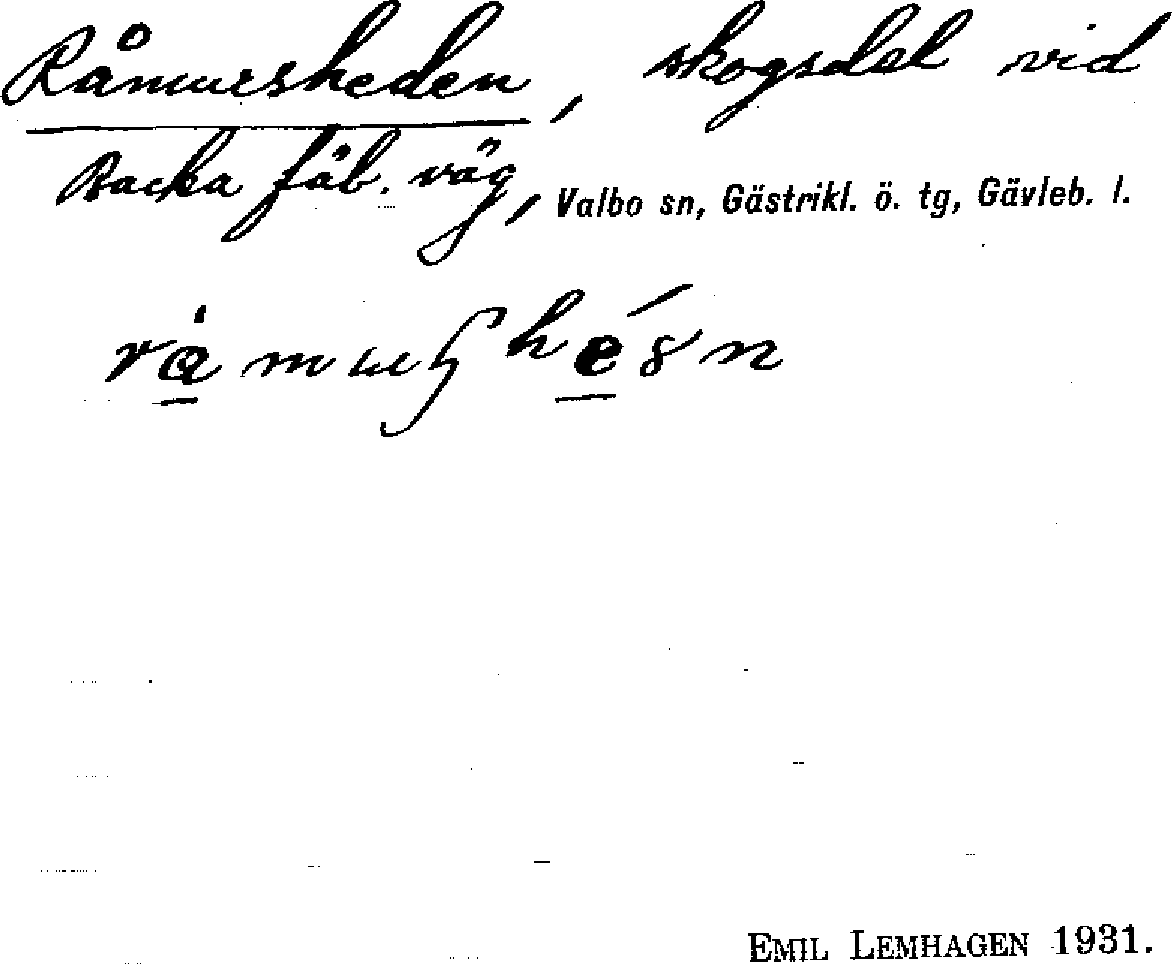 Råmuresheden, skogsdel vid
Backa fäb. väg, Valbo sn, Gästrikl. ö. tg, Gävleb. l.
EMIL LEMHAGEN 1931.